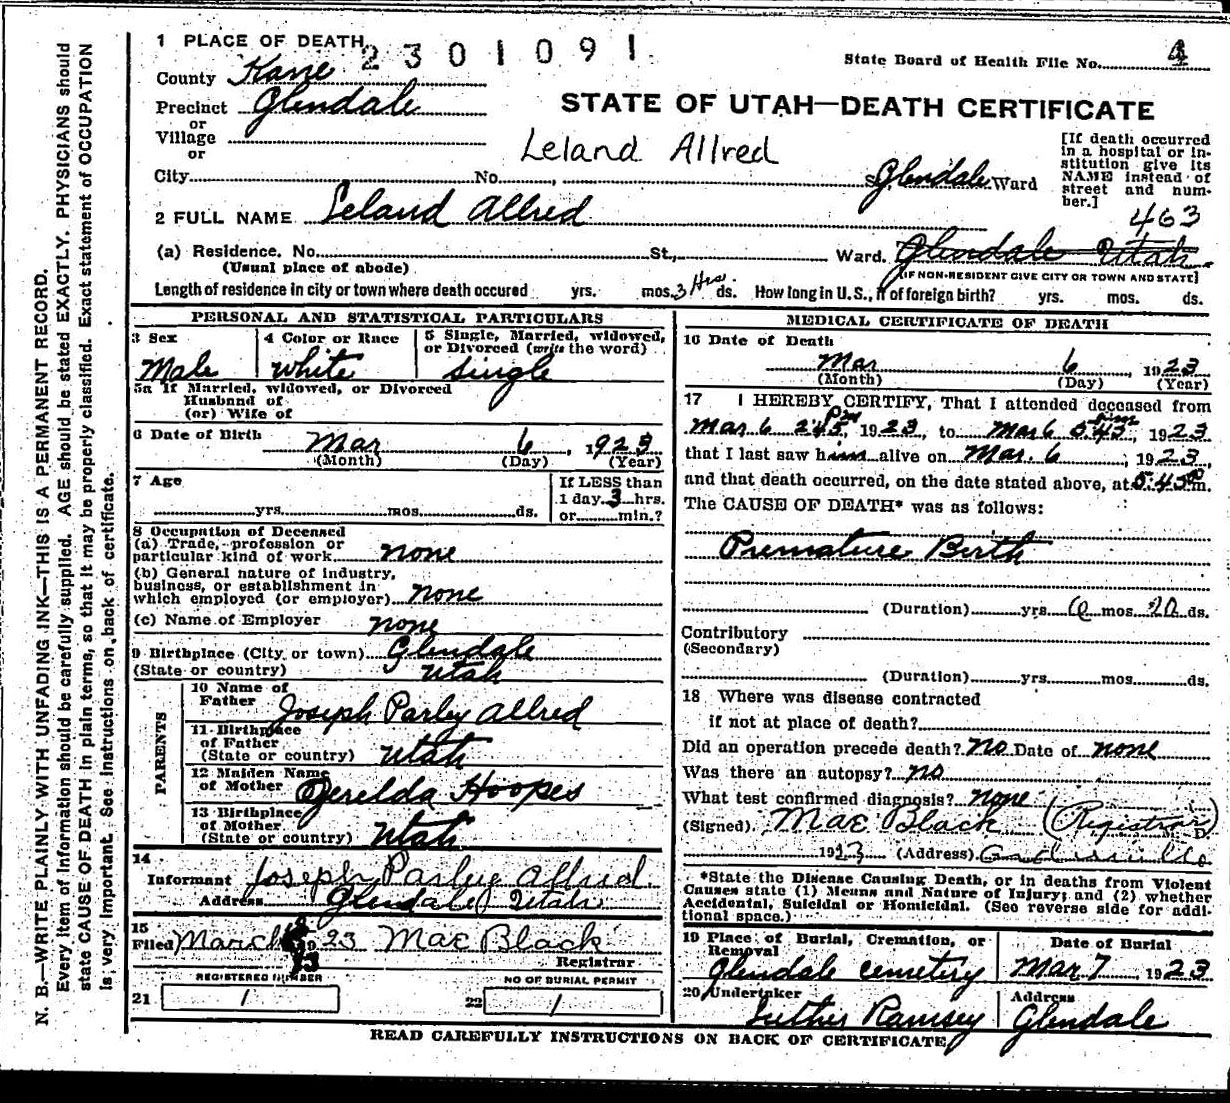 N. B.—WRITE PLAINLY WITH UNFADING INK—THIS IS A PERMANENT RECORD.
Every item of information should be carefully supplied. AGE should be stated EXACTLY. PHYSICIANS should
state CAUSE OF DEATH in plain terms, so that it may be properly classified. Exact statement of OCCUPATION
is very important. See instructions on back of certificate.
1 PLACE OF DEATH
2301091
State Board of Health File No. 4
County Kane
Precinct Glendale
or
Village
or
STATE OF UTAH—DEATH CERTIFICATE
Leland Allred
[If death occurred
in a hospital or in-
stitution give its
NAME instead of
street and num-
ber.]
City No. , Glendale Ward
463
2 FULL NAME Leland Allred
(a) Residence. No. St., Ward. Glendale Utah
(Usual place of abode)
[IF NON-RESIDENT GIVE CITY OR TOWN AND STATE]
Length of residence in city or town where death occured yrs. mos. 3 Hrs ds. How long in U.S., if of foreign birth? yrs. mos. ds.
PERSONAL AND STATISTICAL PARTICULARS
3 Sex
Male
4 Color or Race
White
5 Single, Married, widowed,
or Divorced (write the word)
Single
5a If Married, widowed, or Divorced
Husband of
(or) Wife of
6 Date of Birth
Mar 6, 1923
(Month) (Day) (Year)
7 Age
yrs. mos. ds.
If LESS than
1 day, 3 hrs.
or min.?
8 Occupation of Deceased
(a) Trade, profession or
particular kind of work none
(b) General nature of industry,
business, or establishment in
which employed (or employer) none
(c) Name of Employer none
9 Birthplace (City or town) Glendale
(State or country) Utah
PARENTS
10 Name of
Father Joseph Parley Allred
11 Birthplace
of Father
(State or country) Utah
12 Maiden Name
of Mother Zerelda Hoopes
13 Birthplace
of Mother
(State or country) Utah
14
Informant Joseph Parley Allred
Address Glendale Utah
15
Filed March 1923 Mae Black
Registrar
REGISTERED NUMBER
21 1
NO OF BURIAL PERMIT
22 1
MEDICAL CERTIFICATE OF DEATH
16 Date of Death
Mar 6, 1923
(Month) (Day) (Year)
17 I HEREBY CERTIFY, That I attended deceased from
Mar 6 2:45 pm, 1923, to Mar 6 5:45 pm, 1923
that I last saw him alive on Mar. 6, 1923,
and that death occurred, on the date stated above, at 5:45 p m.
The CAUSE OF DEATH* was as follows:
Premature Birth
(Duration) yrs. 6 mos. 20 ds.
Contributory
(Secondary)
(Duration) yrs. mos. ds.
18 Where was disease contracted
if not at place of death?
Did an operation precede death? No Date of none
Was there an autopsy? no
What test confirmed diagnosis? none
(Signed) Mae Black (Registrar) M. D.
1923 (Address)
*State the Disease Causing Death, or in deaths from Violent
Causes state (1) Means and Nature of Injury; and (2) whether
Accidental, Suicidal or Homicidal. (See reverse side for addi-
tional space.)
19 Place of Burial, Cremation, or
Removal
Glendale cemetery
Date of Burial
Mar 7, 1923
20 Undertaker
Luther Ramsey
Address
Glendale
READ CAREFULLY INSTRUCTIONS ON BACK OF CERTIFICATE